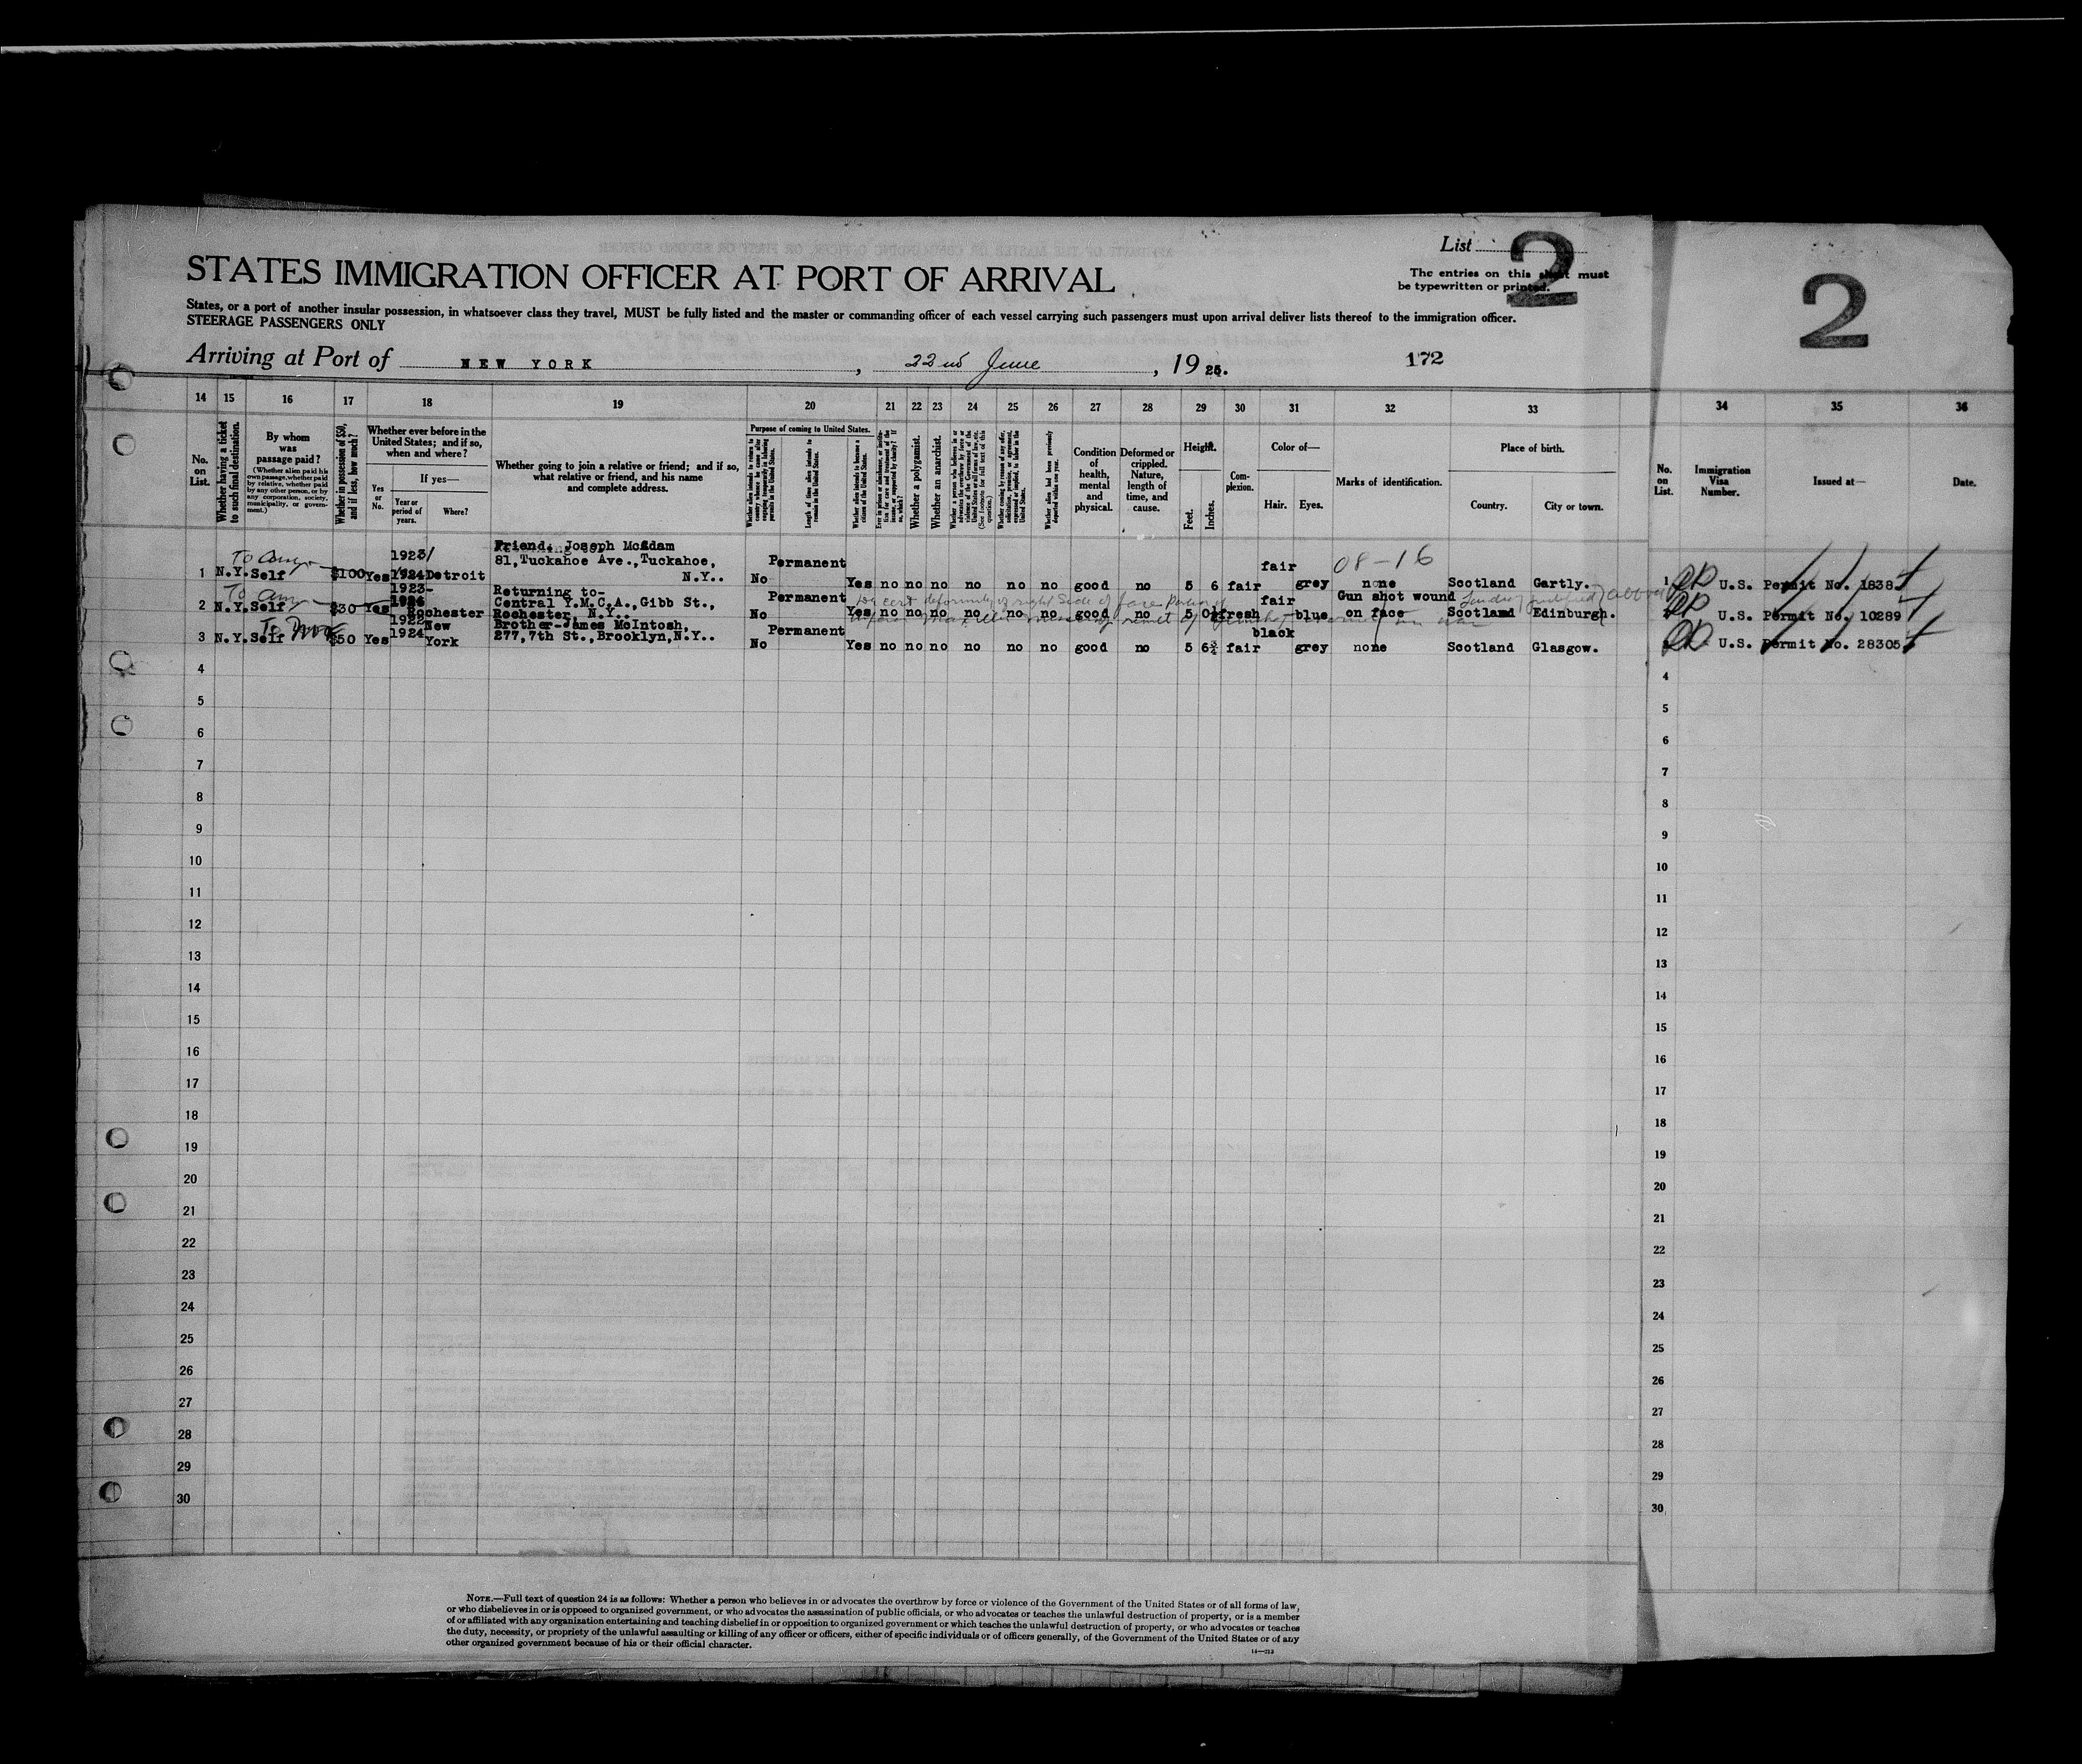 List 2
2
STATES IMMIGRATION OFFICER AT PORT OF ARRIVAL
The entries on this sheet must
be typewritten or printed.
States, or a port of another insular possession, in whatsoever class they travel, MUST be fully listed and the master or commanding officer of each vessel carrying such passengers must upon arrival deliver lists thereof to the immigration officer.
STEERAGE PASSENGERS ONLY
Arriving at Port of NEW YORK, 22nd June, 1925. 172
14 15 16 17 18 19 20 21 22 23 24 25 26 27 28 29 30 31 32 33 34 35 36
No. on List.
Whether having a ticket to such final destination.
By whom was passage paid?
(Whether alien paid his own passage, whether paid by relative, whether paid by any other person, or by any corporation, society, municipality, or government.)
Whether in possession of $50, and if less, how much?
Whether ever before in the United States; and if so, when and where?
If yes—
Yes or No.
Year or period of years.
Where?
Whether going to join a relative or friend; and if so, what relative or friend, and his name and complete address.
Purpose of coming to United States.
Length of time alien intends to remain in the United States.
Whether alien intends to become a citizen of the United States.
Whether a polygamist.
Whether an anarchist.
Condition of health, mental and physical.
Deformed or crippled. Nature, length of time, and cause.
Height.
Feet.
Inches.
Complexion.
Color of—
Hair.
Eyes.
Marks of identification.
Place of birth.
Country.
City or town.
No. on List.
Immigration Visa Number.
Issued at—
Date.
08-16
1 N.Y. Self $100 Yes 1923/ 1924 Detroit Friend, Joseph McAdam
81, Tuckahoe Ave., Tuckahoe,
N.Y.. No Permanent Yes no no no no no no good no 5 6 fair fair grey none Scotland Gartly. 1 U.S. Permit No. 1838
2 N.Y. Self $30 Yes 1923- Rochester Returning to-
Central Y.M.C.A., Gibb St.,
Rochester, N.Y.. No Permanent Yes no no no no no no good no 5 fresh fair blue Gun shot wound
on face Scotland Edinburgh. U.S. Permit No. 10289
deformity of right side of face
3 N.Y. Self $50 Yes 1924 New York Brother-James McIntosh,
277, 7th St., Brooklyn, N.Y.. No Permanent Yes no no no no no no good no 5 6¾ fair black grey none Scotland Glasgow. U.S. Permit No. 28305
4 4
5 5
6 6
7 7
8 8
9 9
10 10
11 11
12 12
13 13
14 14
15 15
16 16
17 17
18 18
19 19
20 20
21 21
22 22
23 23
24 24
25 25
26 26
27 27
28 28
29 29
30 30
NOTE.—Full text of question 24 is as follows: Whether a person who believes in or advocates the overthrow by force or violence of the Government of the United States or of all forms of law,
or who disbelieves in or is opposed to organized government, or who advocates the assassination of public officials, or who advocates or teaches the unlawful destruction of property, or is a member
of or affiliated with any organization entertaining and teaching disbelief in or opposition to organized government or which teaches the unlawful destruction of property, or who advocates or teaches
the duty, necessity, or propriety of the unlawful assaulting or killing of any officer or officers, either of specific individuals or of officers generally, of the Government of the United States or of any
other organized government because of his or their official character.